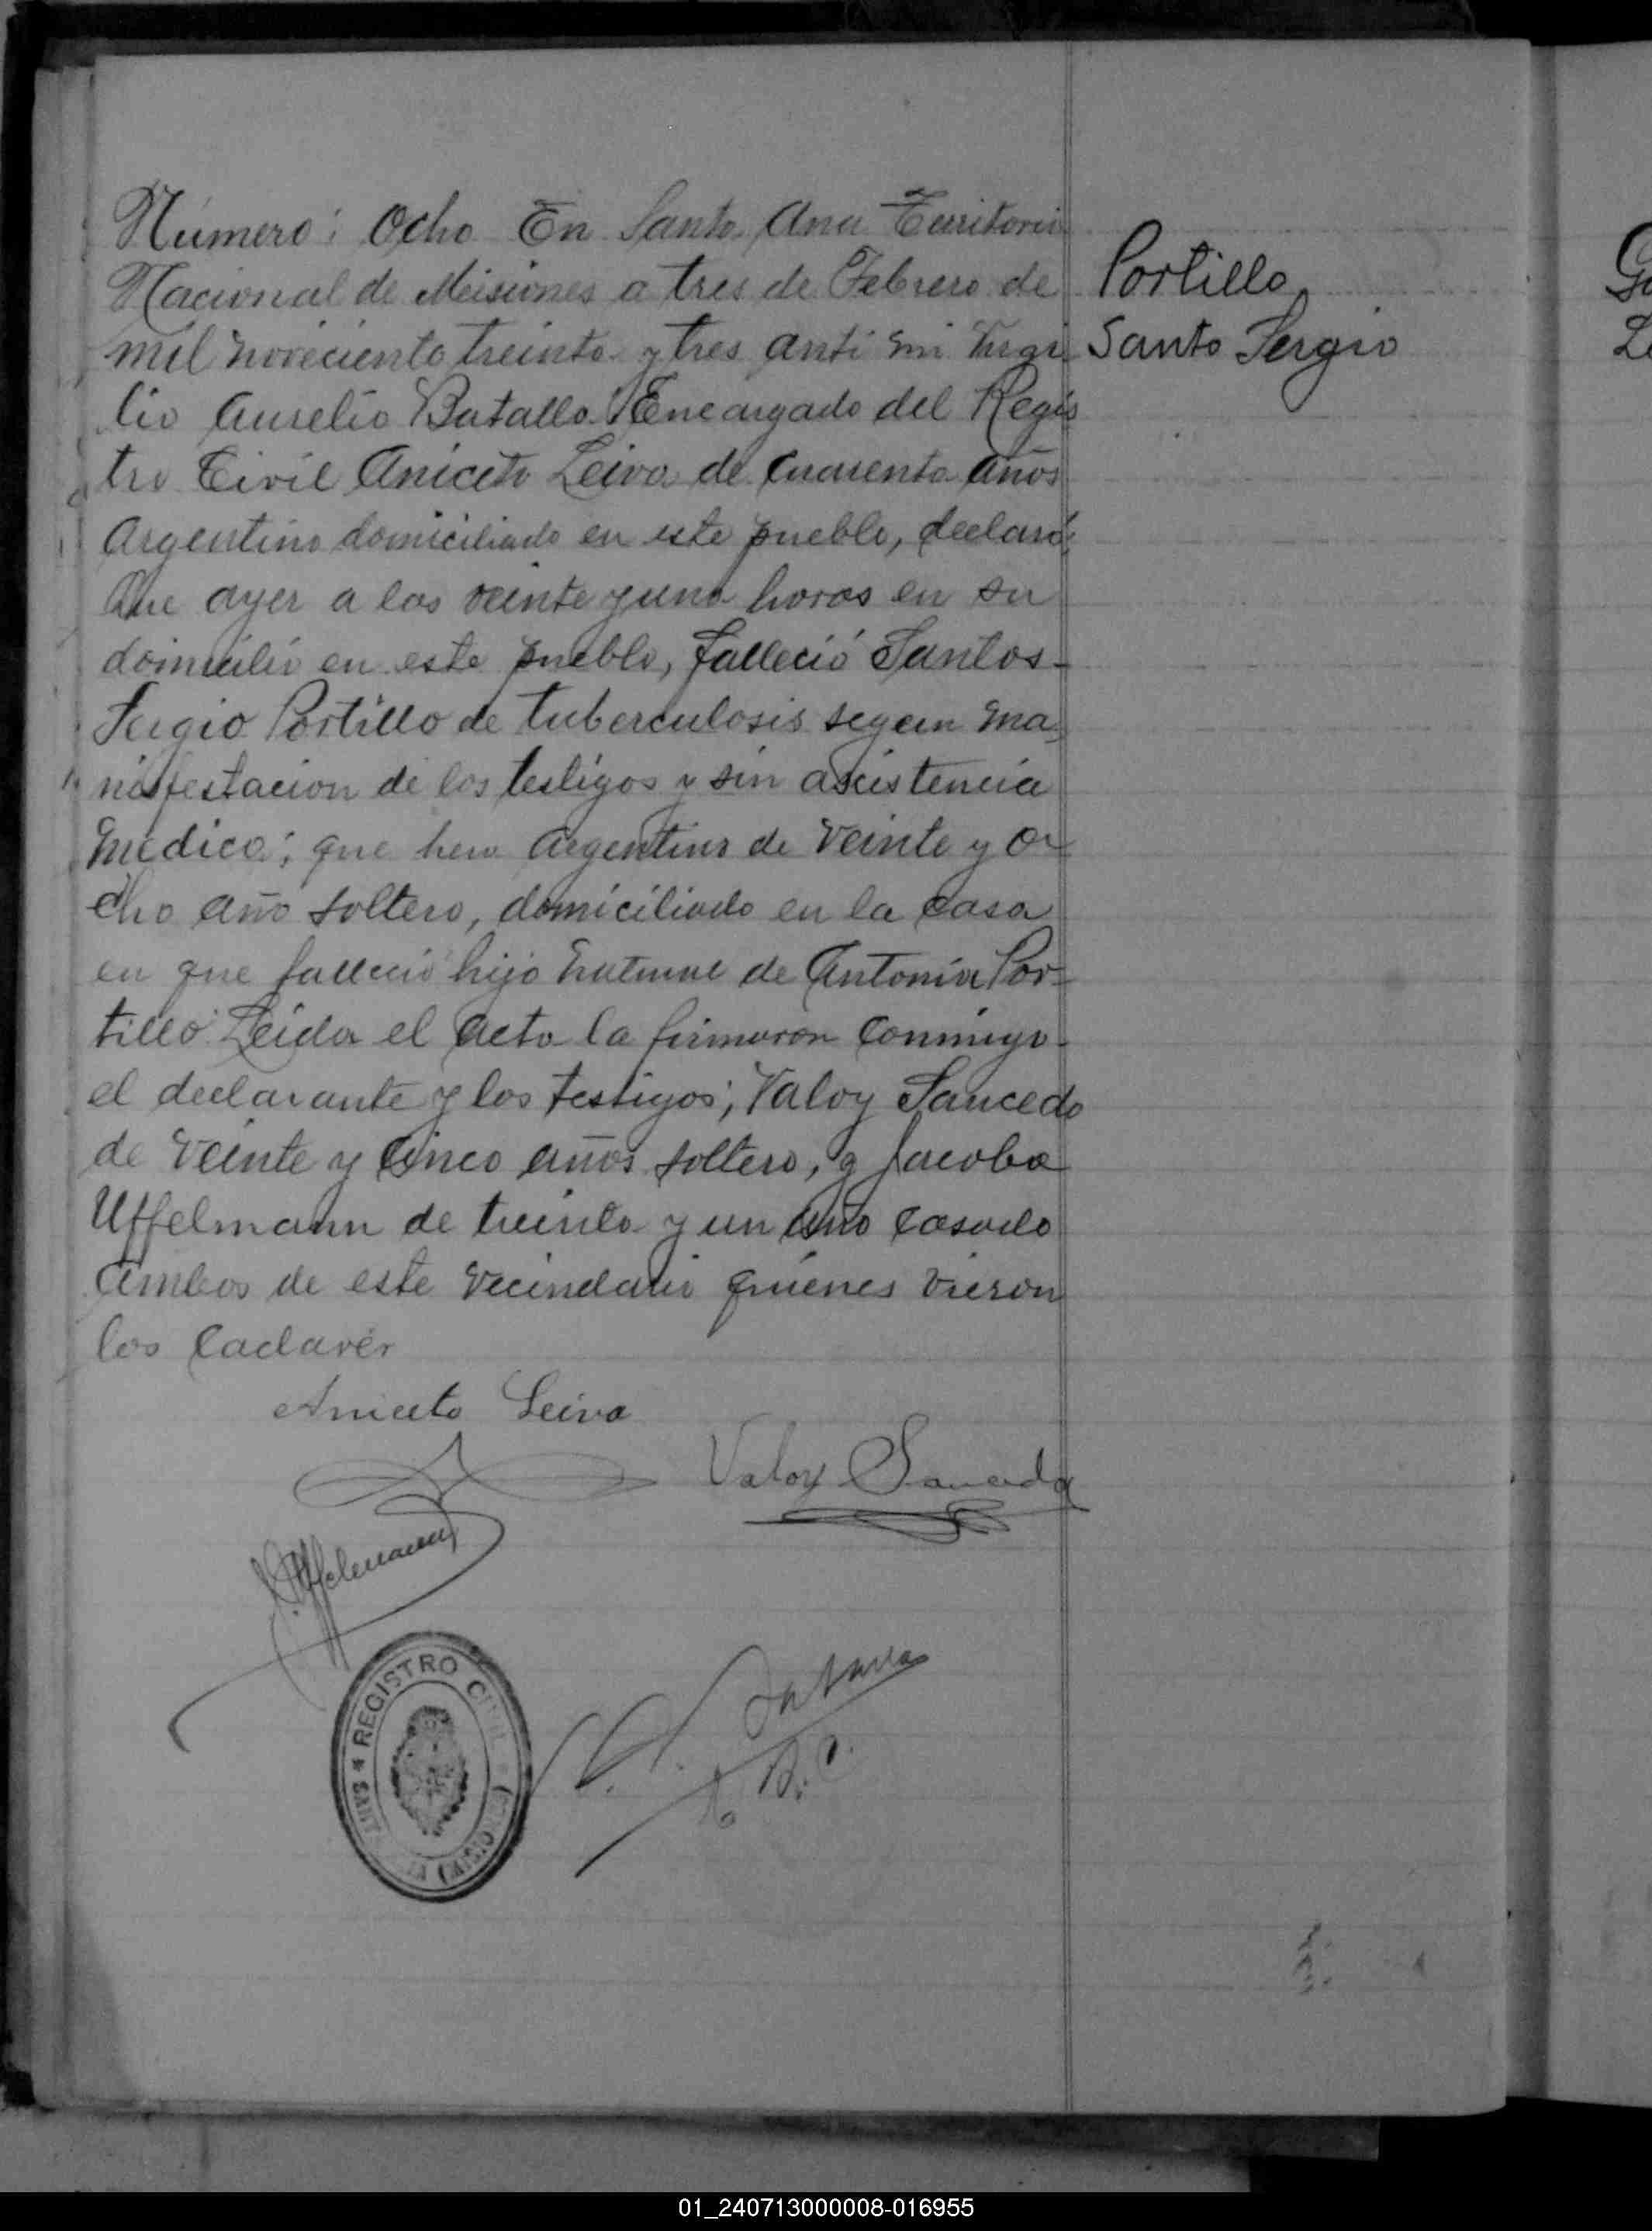 Número: Ocho En Santa Ana Territorio
Nacional de Misiones a tres de Febrero de
mil noveciento treinta y tres anti mi Virgi
lio Aurelio Batalla Encargado del Regis
tro Civil Aniceto Leiva de cuarenta años
Argentino domiciliado en este pueblo, declaró:
Que ayer a las veinte y una horas en su
domicilio en este pueblo, falleció Santos-
Sergio Portillo de tuberculosis segun ma
nisfestacion de los testigos y sin ascistencia
medica; que hera argentino de veinte y o-
cho año soltero, domiciliado en la casa
en que falleció hijo natural de Antonia Por-
tillo Leida el acta la firmaron conmigo-
el declarante y los testigos; Valoy Saucedo
de veinte y cinco años soltero, y Jacobo
Uffelmann de treinta y un año casado
ambos de este vecindario quienes vieron
los cadavér
Portillo,
Santo Sergio
Aniceto Leiva
Valoy Saucedo
Uffelmann
REGISTRO CIVIL
SANTA ANA (MISIONES)
01_240713000008-016955